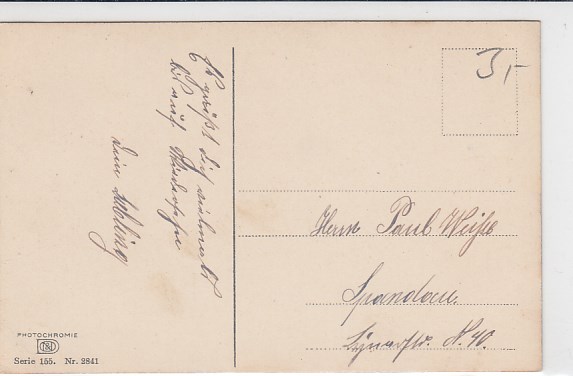 Es grüßt dich vielmals
bis auf Wiedersehn
dein
3,-
Herrn Paul Weiße
Spandau
Lynarstr. N. 40
PHOTOCHROMIE
Serie 155. Nr. 2841